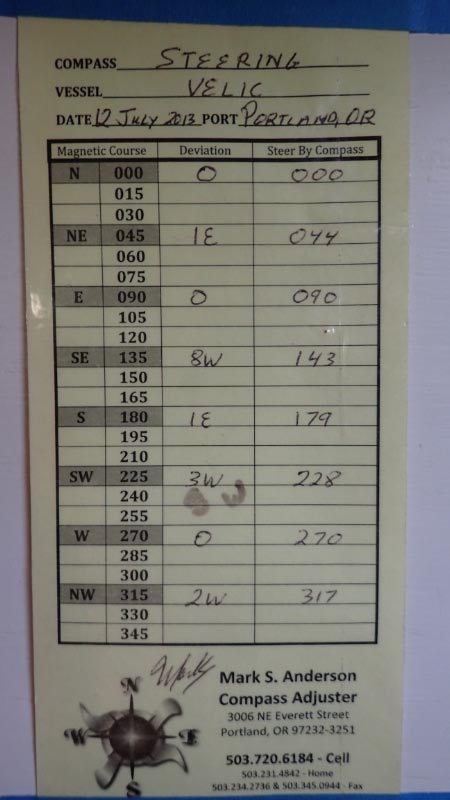 COMPASS STEERING
VESSEL VELIC
DATE 12 JULY 2013 PORT PORTLAND, OR
Magnetic Course Deviation Steer By Compass
N 000 0 000
015
030
NE 045 1E 044
060
075
E 090 0 090
105
120
SE 135 8W 143
150
165
S 180 1E 179
195
210
SW 225 3W 228
240
255
W 270 0 270
285
300
NW 315 2W 317
330
345
N
W E
S
Mark S. Anderson
Compass Adjuster
3006 NE Everett Street
Portland, OR 97232-3251
503.720.6184 - Cell
503.231.4842 - Home
503.234.2736 & 503.345.0944 - Fax